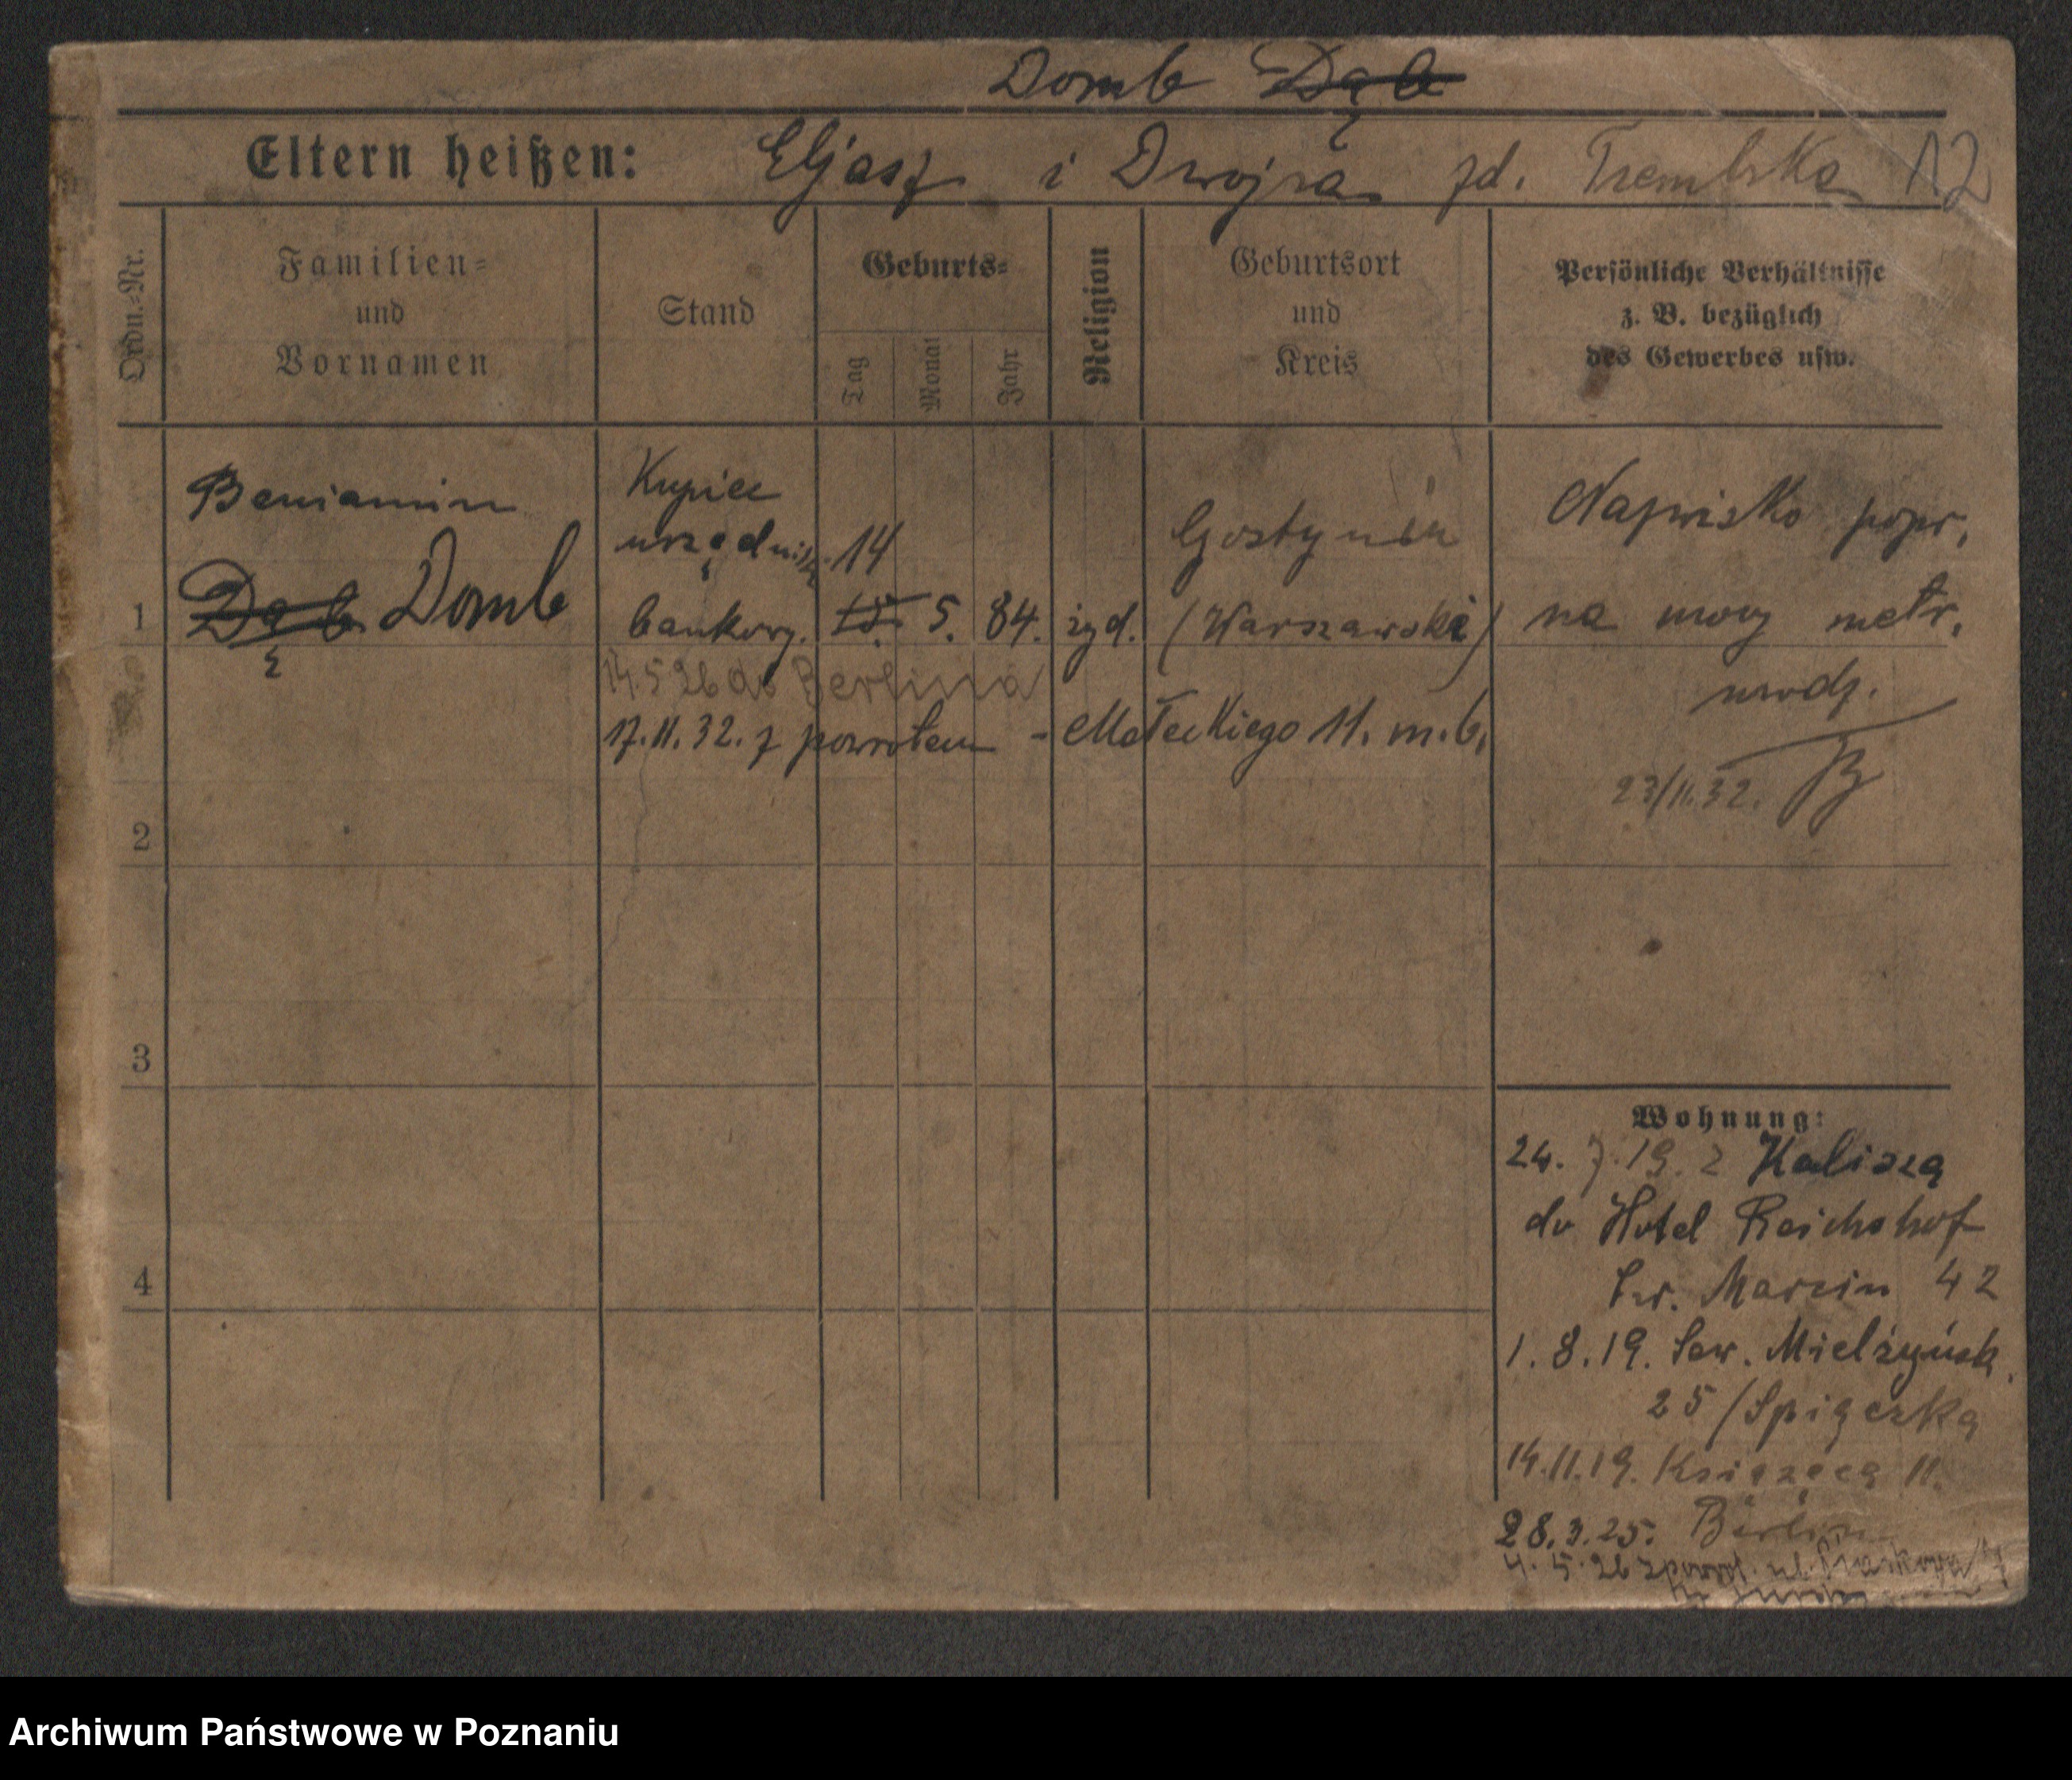 Domb Dąb
Eltern heißen: Eljasz i Dwojra zd. Trembska 12
Ordn.-Nr.
Familien-
und
Vornamen
Stand
Geburts-
Tag
Monat
Jahr
Religion
Geburtsort
und
Kreis
Persönliche Verhältnisse
z. B. bezüglich
des Gewerbes usw.
1
Beniamin
Dąb Domb
Kupiec
urzędnik
bankowy.
14
15. 5. 84.
żyd.
Gostynin
(Warszawski)
14.5 26 do Berlina
17.11.32. z powrotem - Małeckiego 11. m. 6.
Nazwisko popr.
na mocy metr.
urodz.
23/11.32.
2
3
4
Wohnung:
24. 7. 19. z Kalisza
do Hotel Reichshof
Św. Marcin 42
1. 8. 19. Sew. Mielżyńsk.
25 /Spigerka
14.11.19. Książęca 11.
28.3.25. Berlin
4. 5. 26 zpowr. ul.
Archiwum Państwowe w Poznaniu